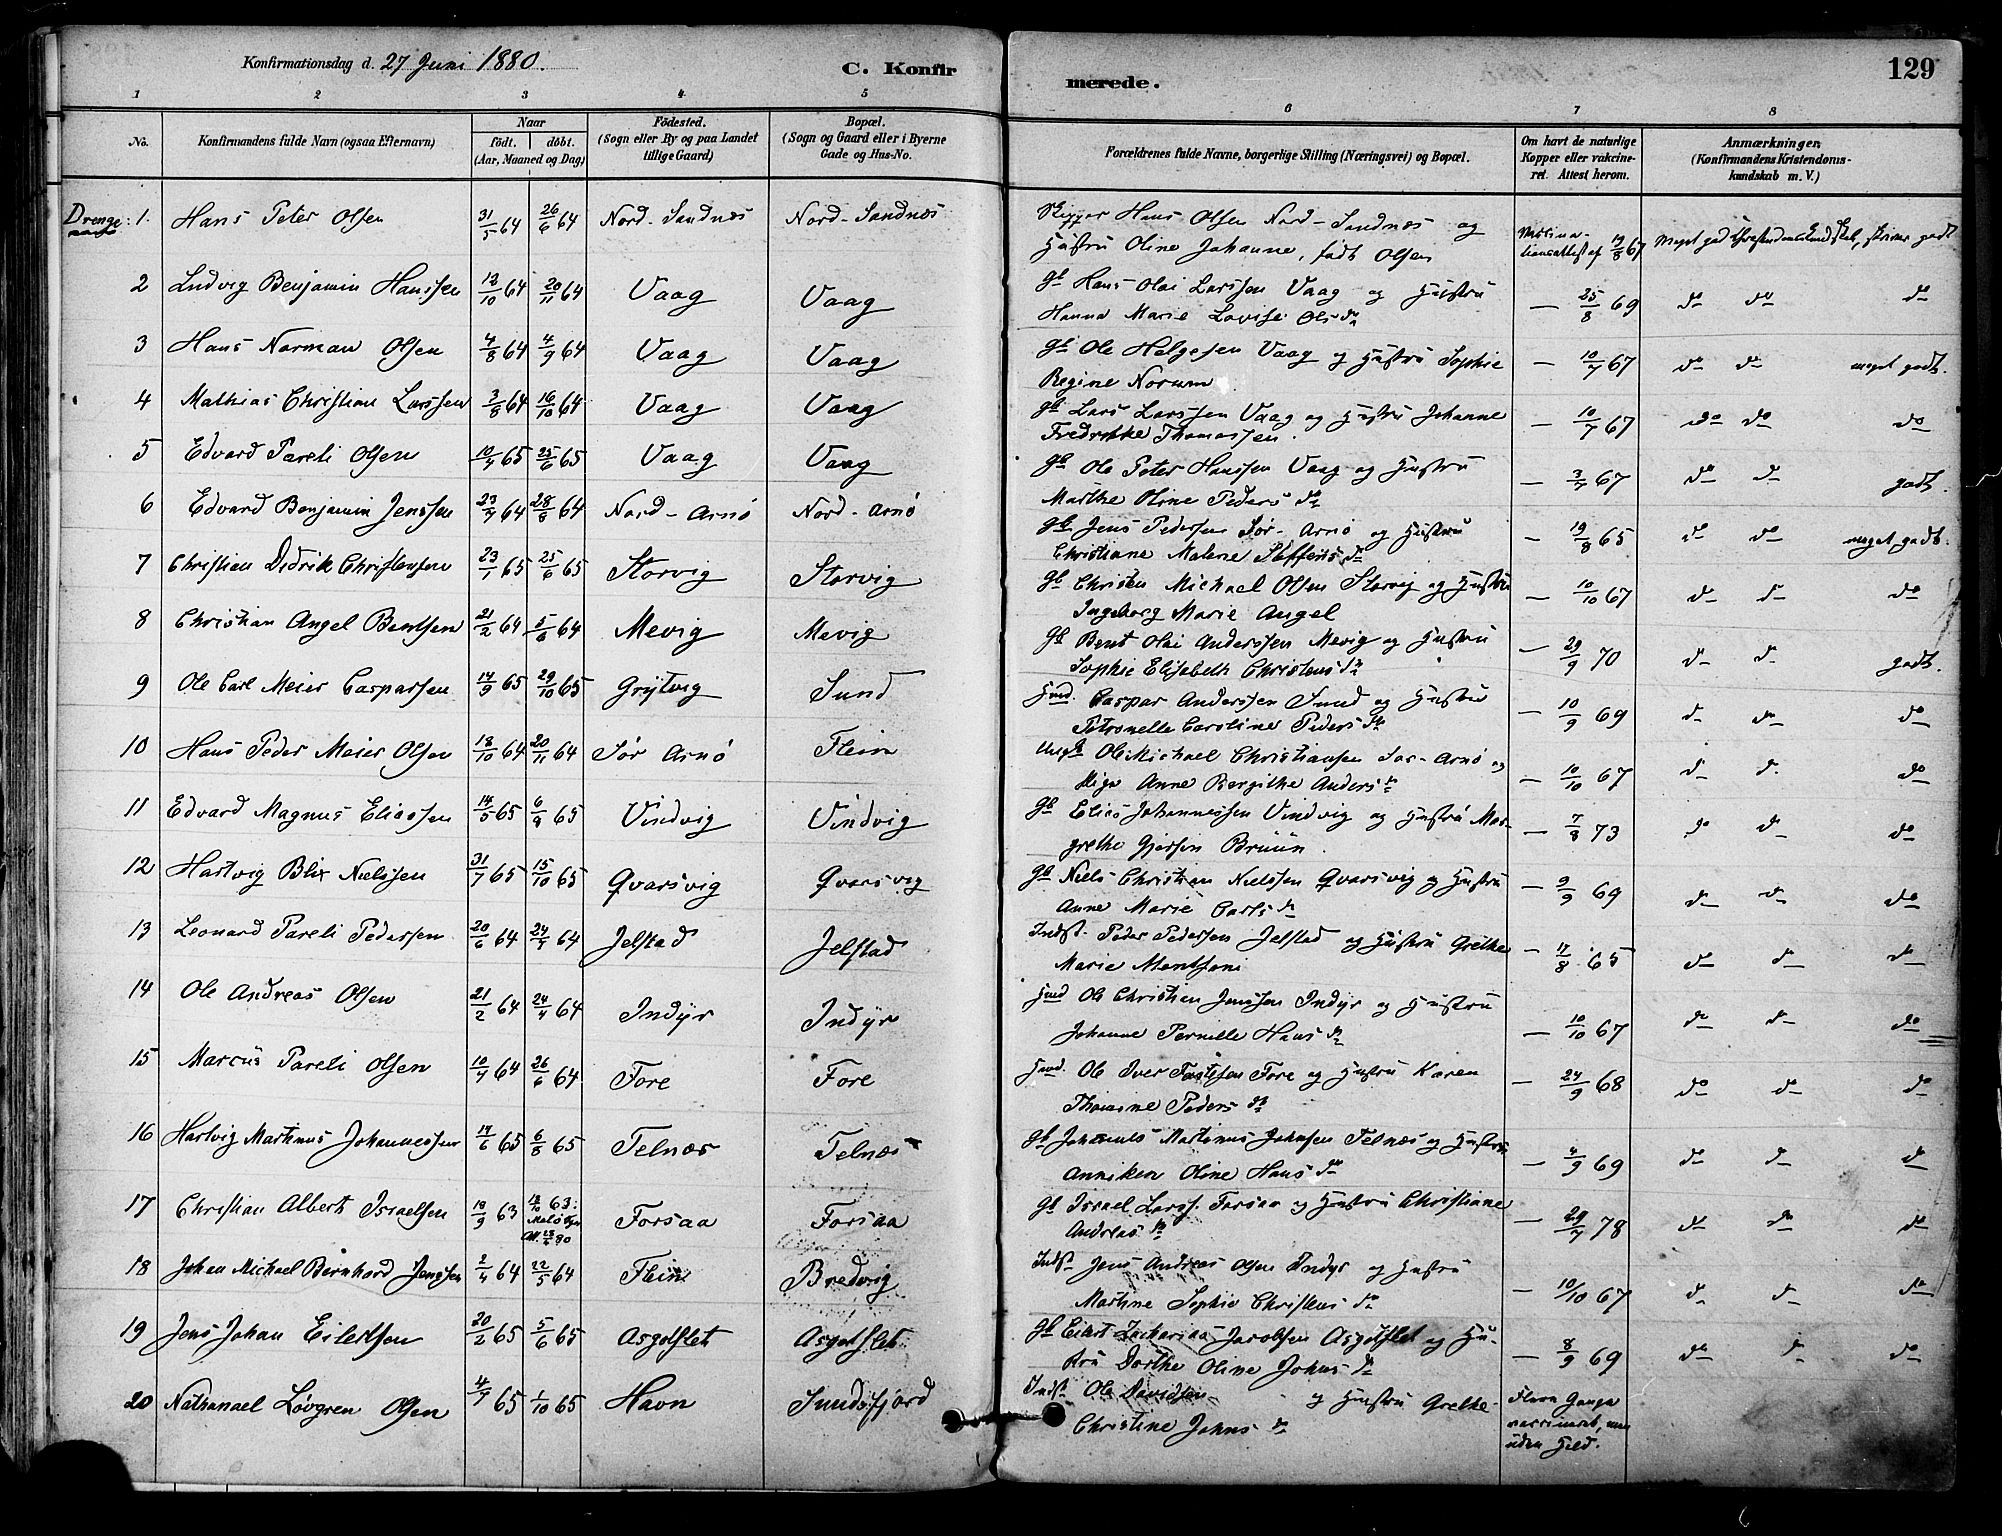 Konfirmationsdag d. 27 Juni 1880.
C. Konfir
merede.
129
1 2 3 4 5 6 7 8
No.
Konfirmandens fulde Navn (ogsaa Efternavn)
Naar
födt. döbt.
(Aar, Maaned og Dag)
Födested.
(Sogn eller By og paa Landet
tillige Gaard)
Bopæl.
(Sogn og Gaard eller i Byerne
Gade og Hus-No.
Forældrenes fulde Navne, borgerlige Stilling (Næringsvei) og Bopæl.
Om havt de naturlige
Kopper eller vakcine-
ret. Attest herom.
Anmærkninger.
(Konfirmandens Kristendoms-
kundskab m. V.)
Drenge: 1. Hans Peter Olsen 31/5 64 26/6 64 Nord-Sandnæs Nord-Sandnæs Skipper Hans Olsen Nord-Sandnæs og 19/8 67 Meget god Christendomskundskab, skriver godt
Hustru Oline Johanne, født Olsen
2 Ludvig Benjamin Hanssen 12/10 64 20/11 64 Vaag Vaag gb Hans Olai Larssen Vaag og Hustru — 25/8 69 do do do
Hanna Marie Lovise Ols do
3 Hans Norman Olsen 4/8 64 4/9 64 Vaag Vaag gb Ole Helgesen Vaag og Hustru Sophie — 10/7 67 do do meget godt.
Regine Norum
4 Mathias Christian Larssen 3/8 64 16/10 64 Vaag Vaag gb Lars Larssen Vaag og Hustru Johanne — 10/7 67 do do do
Fredrikke Thomassen.
5 Edvard Pareli Olsen 10/4 65 25/6 65 Vaag Vaag gb Ole Peter Hanssen Vaag og Hustru — 3/7 67 do do godt.
Marthe Oline Peders do
6 Edvard Benjamin Jenssen 23/7 64 28/8 64 Nord-Arnö Nord-Arnö gb Jens Pedersen Sør-Arnö og Hustru — 19/8 65 do do meget godt.
Christiane Malene Steffens do
7 Christian Didrik Christensen 23/1 65 25/6 65 Storvig Storvig gb Christen Michael Olsen Storvig og Hustru — 10/10 67 do do do
Ingeborg Marie Angel
8 Christian Angel Bentsen 21/2 64 5/6 64 Mevig Mevig gb Bent Olai Anderssen Mevig og Hustru — 29/9 70 do do godt.
Sophie Elisabeth Christens do
9 Ole Carl Meier Casparsen 14/9 65 29/10 65 Grytvig Sund Hmd. Caspar Anderssen Sund og Hustru — 10/9 69 do do do
Petronelle Caroline Peders do
10 Hans Peder Meier Olsen 18/10 64 20/11 64 Sør Arnö Flein Ungk Ole Michael Christiansen Sør-Arnö og — 10/10 67 do do do
Pige Anne Bergithe Anders do
11 Edvard Magnus Eliassen 14/5 65 6/9 65 Vindvig Vindvig gb Elias Johannessen Vindvig og Hustru Mar- — 7/8 73 do do do
grethe Gjersin Brüün.
12 Hartvig Blix Nielssen 31/7 65 15/10 65 Qvarsvig Qvarsvig gb Niels Christian Nielssen Qvarsvig og Hustru — 9/9 69 do do do
Anne Marie Carls do
13 Leonard Pareli Pedersen 20/6 64 24/7 64 Jelstad Jelstad Indst. Peder Pedersen Jelstad og Hustru Grethe — 17/8 65 do do do
Marie Mentsoni
14 Ole Andreas Olsen 21/2 64 24/4 64 Indyr Indyr Hmd Ole Christian Jenssen Indyr og Hustru — 10/10 67 do do do
Johanne Pernelle Hans do
15 Marcus Pareli Olsen 10/4 64 26/6 64 Fore Fore Hmd. Ole Iver Tostesen Fore og Hustru Karen — 24/9 68 do do do
Thomine Peders do
16 Hartvig Martinus Johannessen 14/6 65 6/8 65 Telnæs Telnæs gb Johannes Martinus Johnsen Telnæs og Hustru — 4/9 69 do do do
Anniken Oline Hans do
17 Christian Albert Israelsen 18/9 63 18/10 63: Forsaa Forsaa gb Israel Larss. Forsaa og Hustru Christiane — 29/7 78 do do do
Andreas do
18 Johan Michael Bernhard Jenssen 2/4 64 22/5 64 Flein Bredvig Indst Jens Andreas Olsen Indyr og Hustru — 10/10 67 do do do
Martine Sophie Christens do
19 Jens Johan Eilertsen 20/2 65 5/6 65 Asgotslet Asgotslet gb Eilert Zacharias Jacobsen Asgotslet og Hu- — 8/9 69 do do do
stru Dorthe Oline Johns do
20 Nathanael Løvgren Olsen 4/7 65 1/10 65 Havn Sundsfjord Indst Ole Davidsen og Hustru Grethe Flere Gange
Christine Johns do vaccineret, men
uden Held.